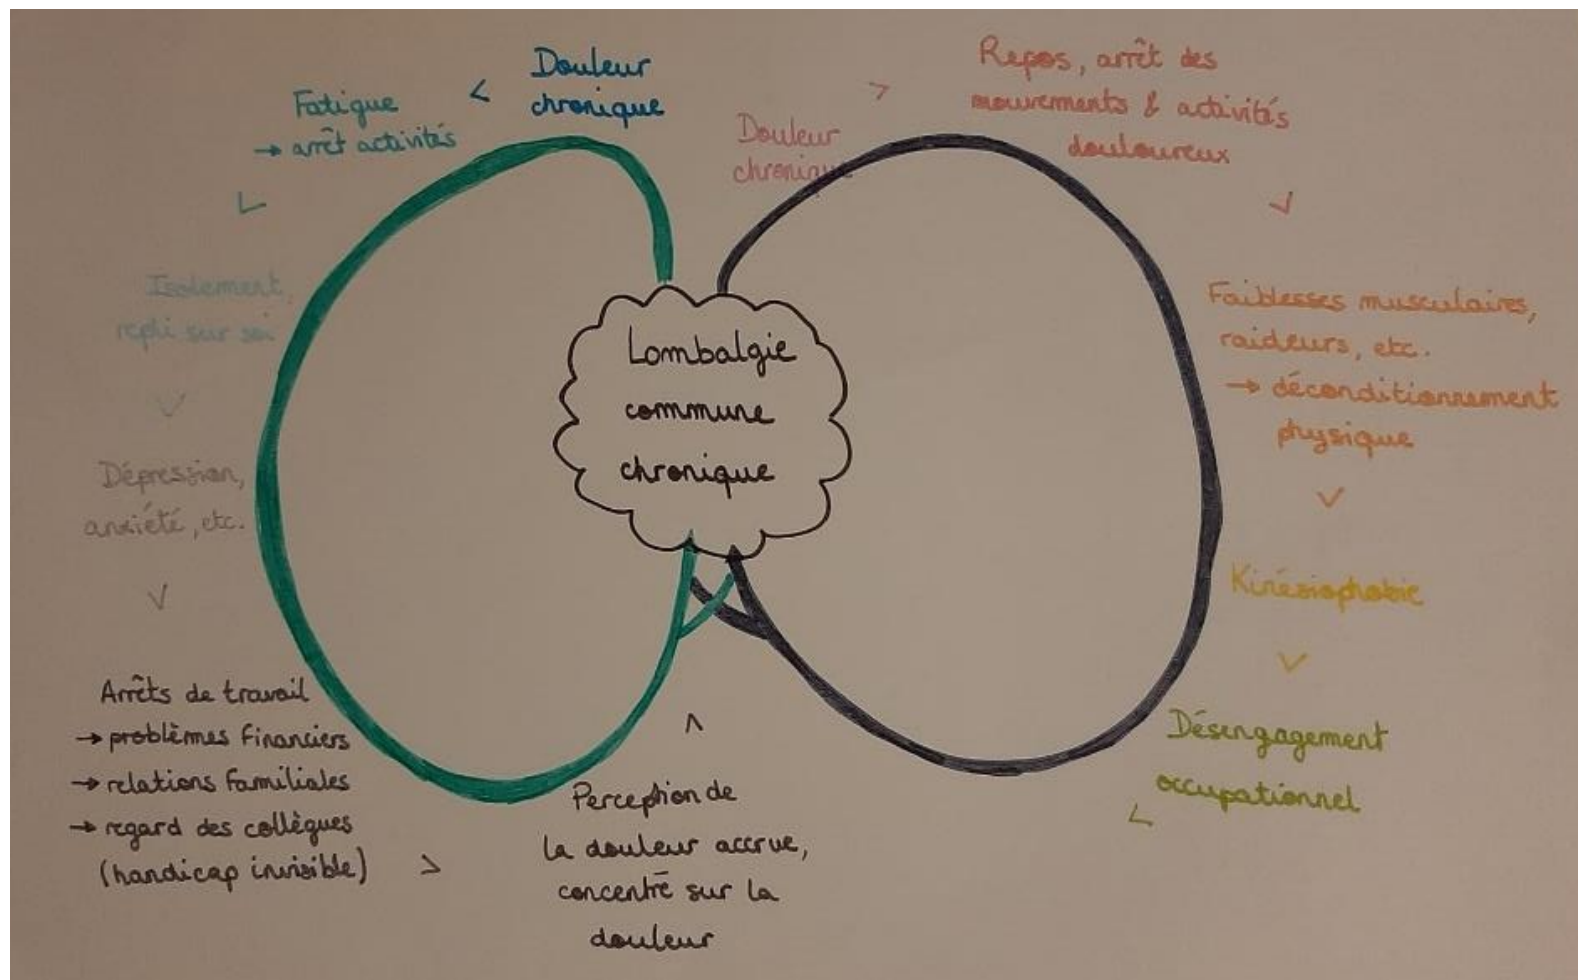 Lombalgie
commune
chronique
Douleur
chronique
<
Fatigue
→ arrêt activités
Isolement,
repli sur soi
Dépression,
anxiété, etc.
Arrêts de travail
→ problèmes financiers
→ relations familiales
→ regard des collègues
(handicap invisible)
>
Perception de
la douleur accrue,
concentré sur la
douleur
Douleur
chronique
>
Repos, arrêt des
mouvements & activités
douloureux
Faiblesses musculaires,
raideurs, etc.
→ déconditionnement
physique
Kinésiophobie
Désengagement
occupationnel